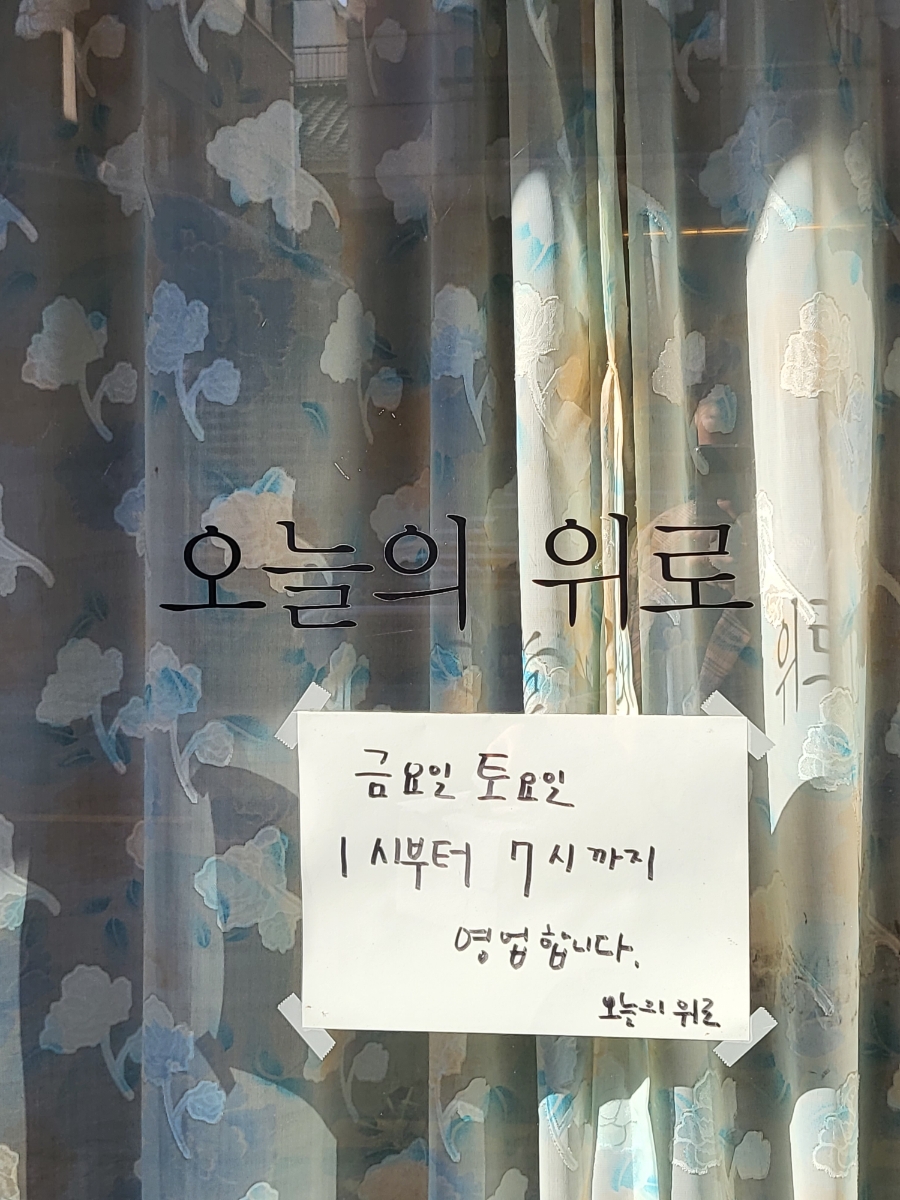 오늘의 위로
금요일 토요일
1시부터 7시까지
영업합니다.
오늘의 위로